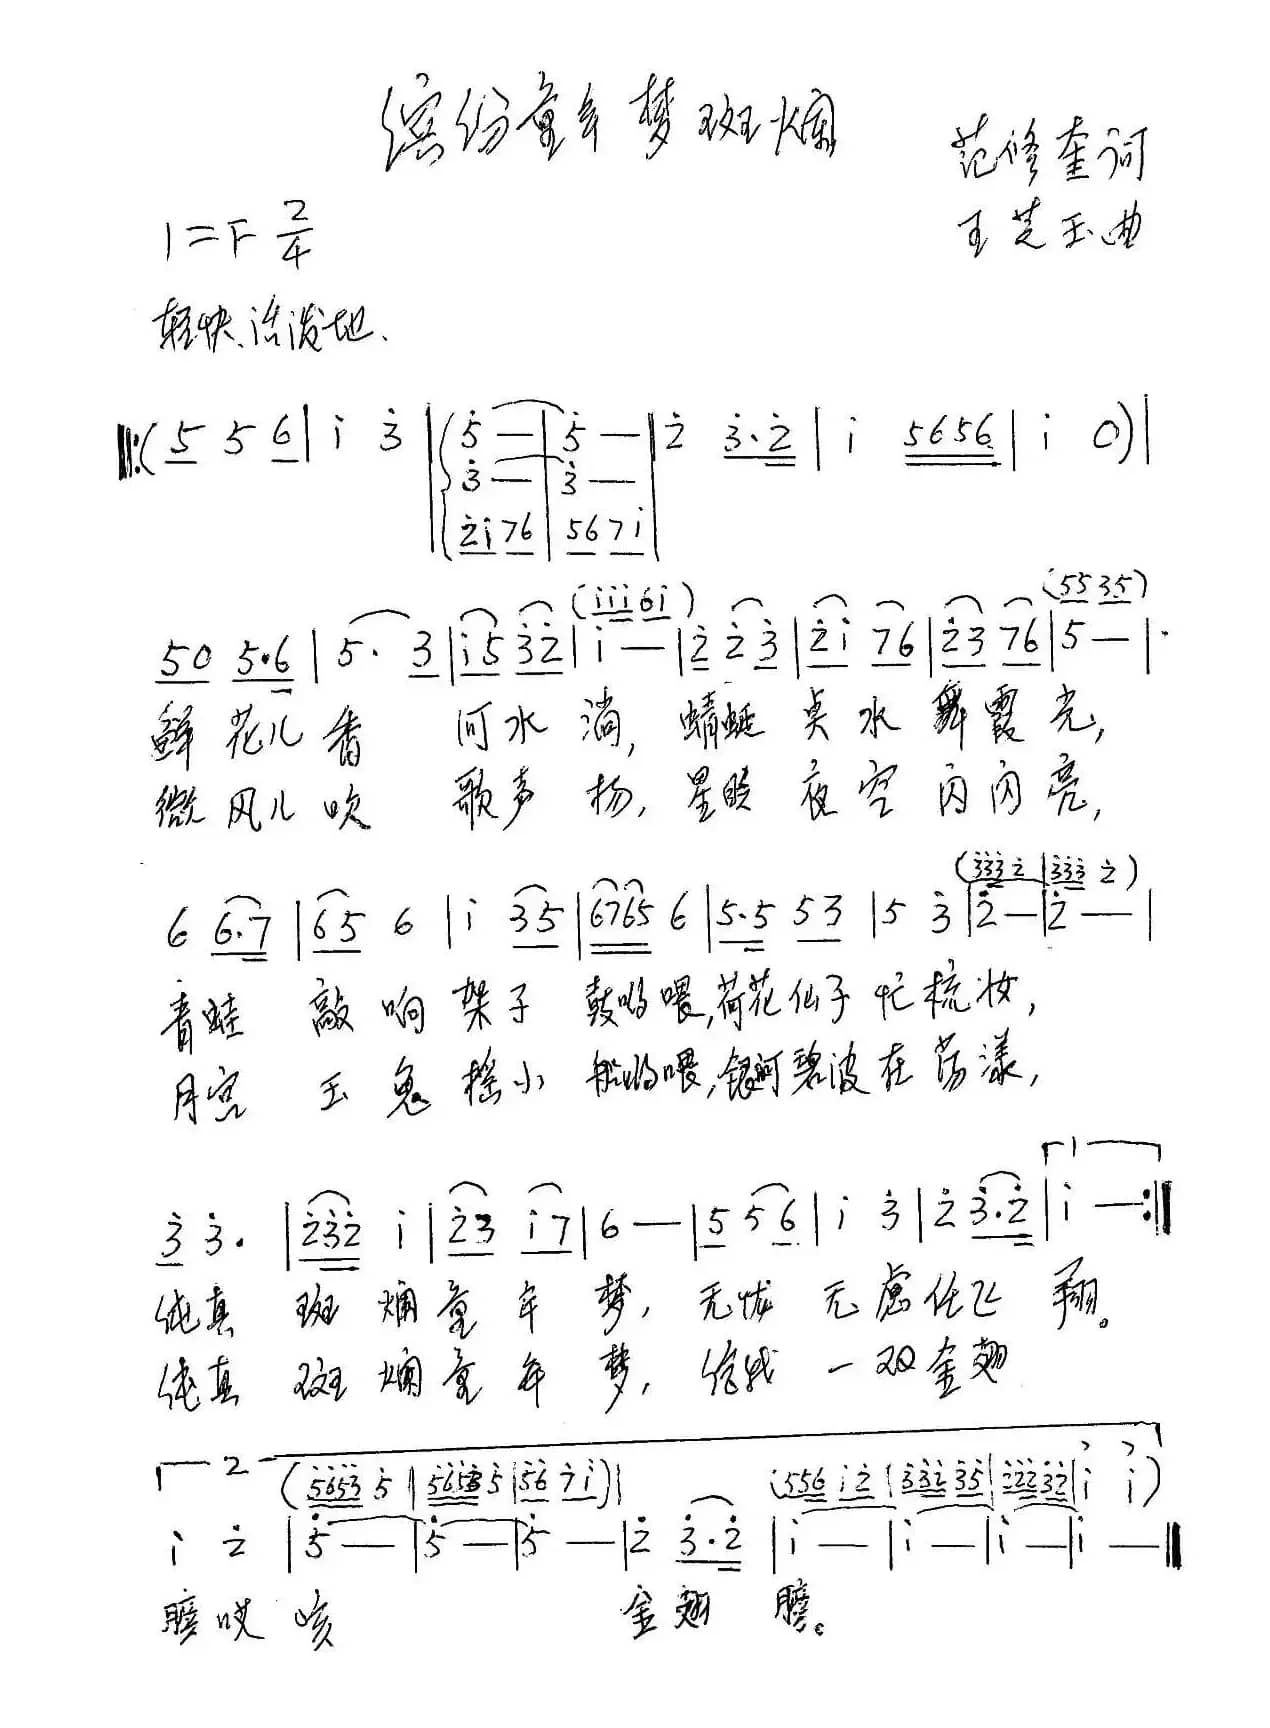 缤纷童年梦斑斓
范修奎词
王芝玉曲
1=F 2/4
轻快、活泼地、
‖:( 5 5 6 | i 3̇ | 5̇ — | 5̇ — | 2̇ 3̇·2̇ | i 5656 | i 0 ) |
3̇ — | 3̇ —
2̇i76 | 567i
(iii6i) (5535)
50 5·6 | 5· 3 | i5 3̇2̇ | i — | 2̇ 2̇ 3̇ | 2̇i 76 | 2̇3 76 | 5 — |
鲜花儿香 河水淌,蜻蜓点水舞霞光,
微风儿吹 歌声扬,星晓夜空闪闪亮,
(3̇3̇3̇ 2̇ | 3̇3̇3̇ 2̇)
6 6·7 | 65 6 | i 35 | 6765 6 | 5·5 53 | 5 3̇ | 2̇ — | 2̇ — |
青蛙 敲响架子鼓哟喂,荷花仙子忙梳妆,
月宫 玉兔摇小船哟喂,银河碧波在荡漾,
1
3̇ 3̇· | 2̇3̇2̇ i | 2̇3 i7 | 6 — | 5 5 6 | i 3̇ | 2̇ 3̇·2̇ | i — :‖
纯真 斑斓童年梦,无忧无虑任飞翔。
纯真 斑斓童年梦,给我一双金翅
2
(5̇6̇5̇3̇ 5̇ | 5̇6̇5̇3̇ 5̇ | 5̇6̇ 7̇i) | (556 i2̇ | 3̇3̇2̇ 3̇5̇ | 2̇2̇2̇3̇2̇ | i i)
i 2̇ | 5̇ — | 5̇ — | 5̇ — | 2̇ 3̇·2̇ | i — | i — | i — | i — ‖
膀哎 咳 金翅 膀。